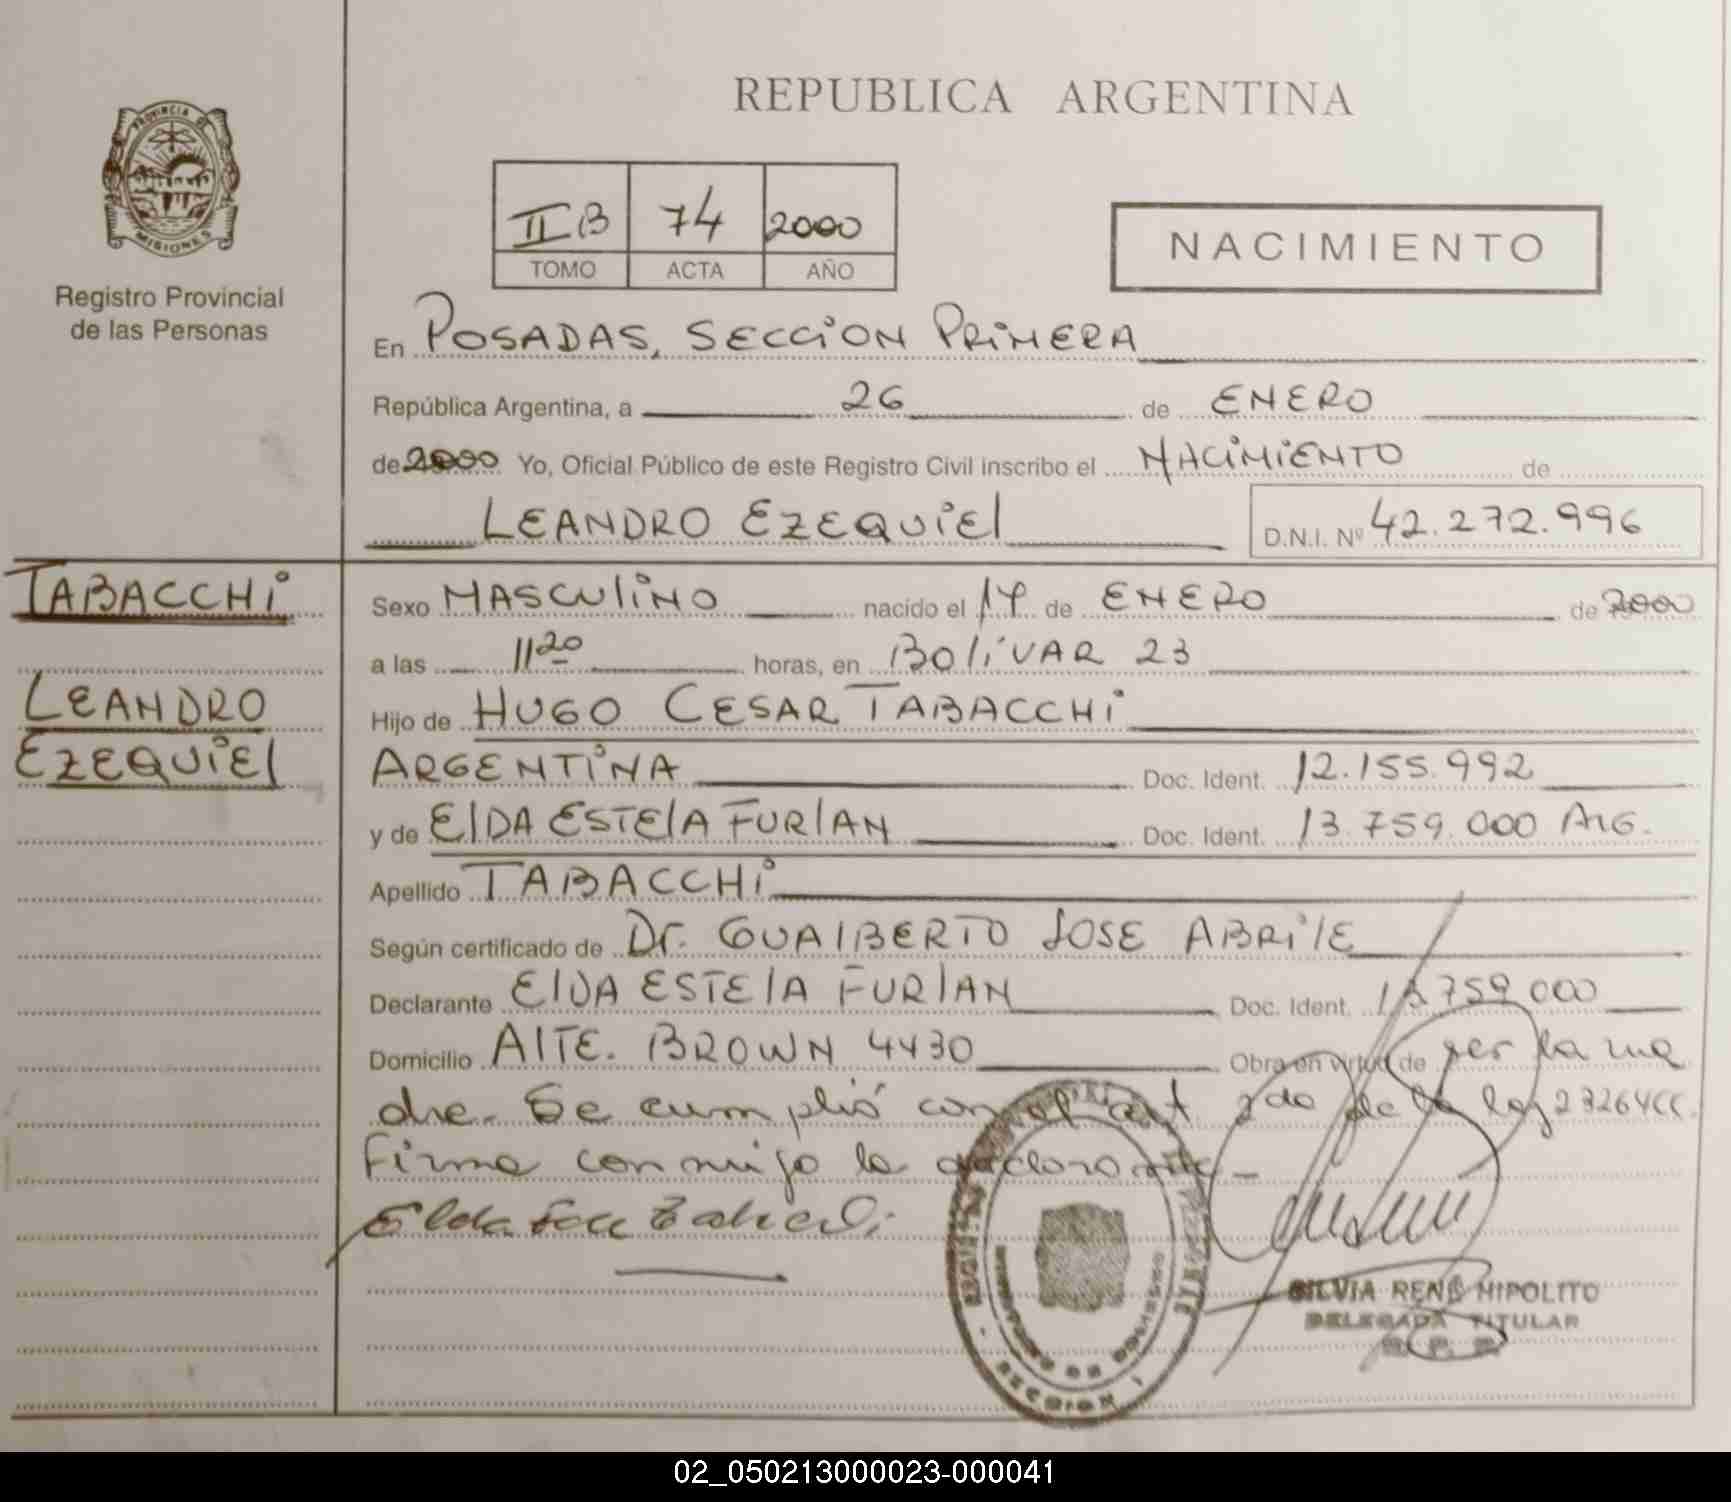 REPUBLICA ARGENTINA
PROVINCIA DE
MISIONES
Registro Provincial
de las Personas
II B 74 2000
TOMO ACTA AÑO
NACIMIENTO
En POSADAS, SECCION PRIMERA
República Argentina, a 26 de ENERO
de 2000 Yo, Oficial Público de este Registro Civil inscribo el NACIMIENTO de
LEANDRO EZEQUIEL D.N.I. Nº 42.272.996
TABACCHI
LEANDRO
EZEQUIEL
Sexo MASCULINO nacido el 14 de ENERO de 2000
a las 11 20 horas, en BOLIVAR 23
Hijo de HUGO CESAR TABACCHI
ARGENTINA Doc. Ident. 12.155.992
y de ELDA ESTELA FURLAN Doc. Ident. 13.759.000 ARG.
Apellido TABACCHI
Según certificado de Dr. GUALBERTO JOSE ABRILE
Declarante ELDA ESTELA FURLAN Doc. Ident. 13759000
Domicilio ALTE. BROWN 4430 Obra en virtud de ser la ma
dre. Se cumplió con el art 2do de la ley 23264CC.
Firma conmigo la declarante-
Elda
SILVIA RENÉ HIPOLITO
DELEGADA TITULAR
R. P. P.
SECCION I
02_050213000023-000041